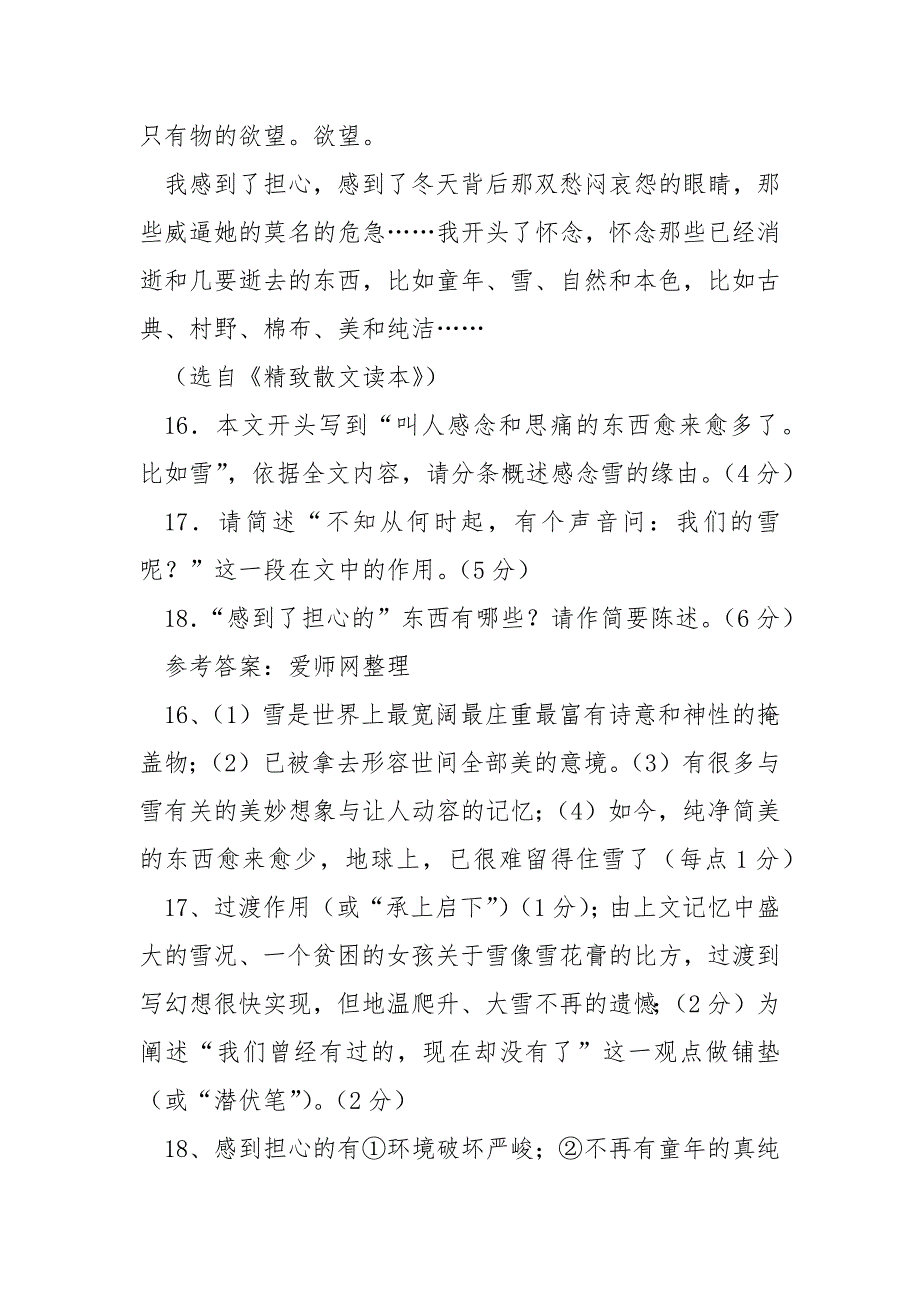 只有物的欲望。欲望。
我感到了担心，感到了冬天背后那双愁闷哀怨的眼睛，那
些威逼她的莫名的危急……我开头了怀念，怀念那些已经消
逝和几要逝去的东西，比如童年、雪、自然和本色，比如古
典、村野、棉布、美和纯洁……
（选自《精致散文读本》）
16．本文开头写到“叫人感念和思痛的东西愈来愈多了。
比如雪”，依据全文内容，请分条概述感念雪的缘由。（4分）
17．请简述“不知从何时起，有个声音问：我们的雪
呢？”这一段在文中的作用。（5分）
18．“感到了担心的”东西有哪些？请作简要陈述。（6分）
参考答案：爱师网整理
16、（1）雪是世界上最宽阔最庄重最富有诗意和神性的掩
盖物；（2）已被拿去形容世间全部美的意境。（3）有很多与
雪有关的美妙想象与让人动容的记忆；（4）如今，纯净简美
的东西愈来愈少，地球上，已很难留得住雪了（每点1分）
17、过渡作用（或“承上启下”）（1分）；由上文记忆中盛
大的雪况、一个贫困的女孩关于雪像雪花膏的比方，过渡到
写幻想很快实现，但地温爬升、大雪不再的遗憾；（2分）为
阐述“我们曾经有过的，现在却没有了”这一观点做铺垫
（或“潜伏笔”）。（2分）
18、感到担心的有①环境破坏严峻；②不再有童年的真纯